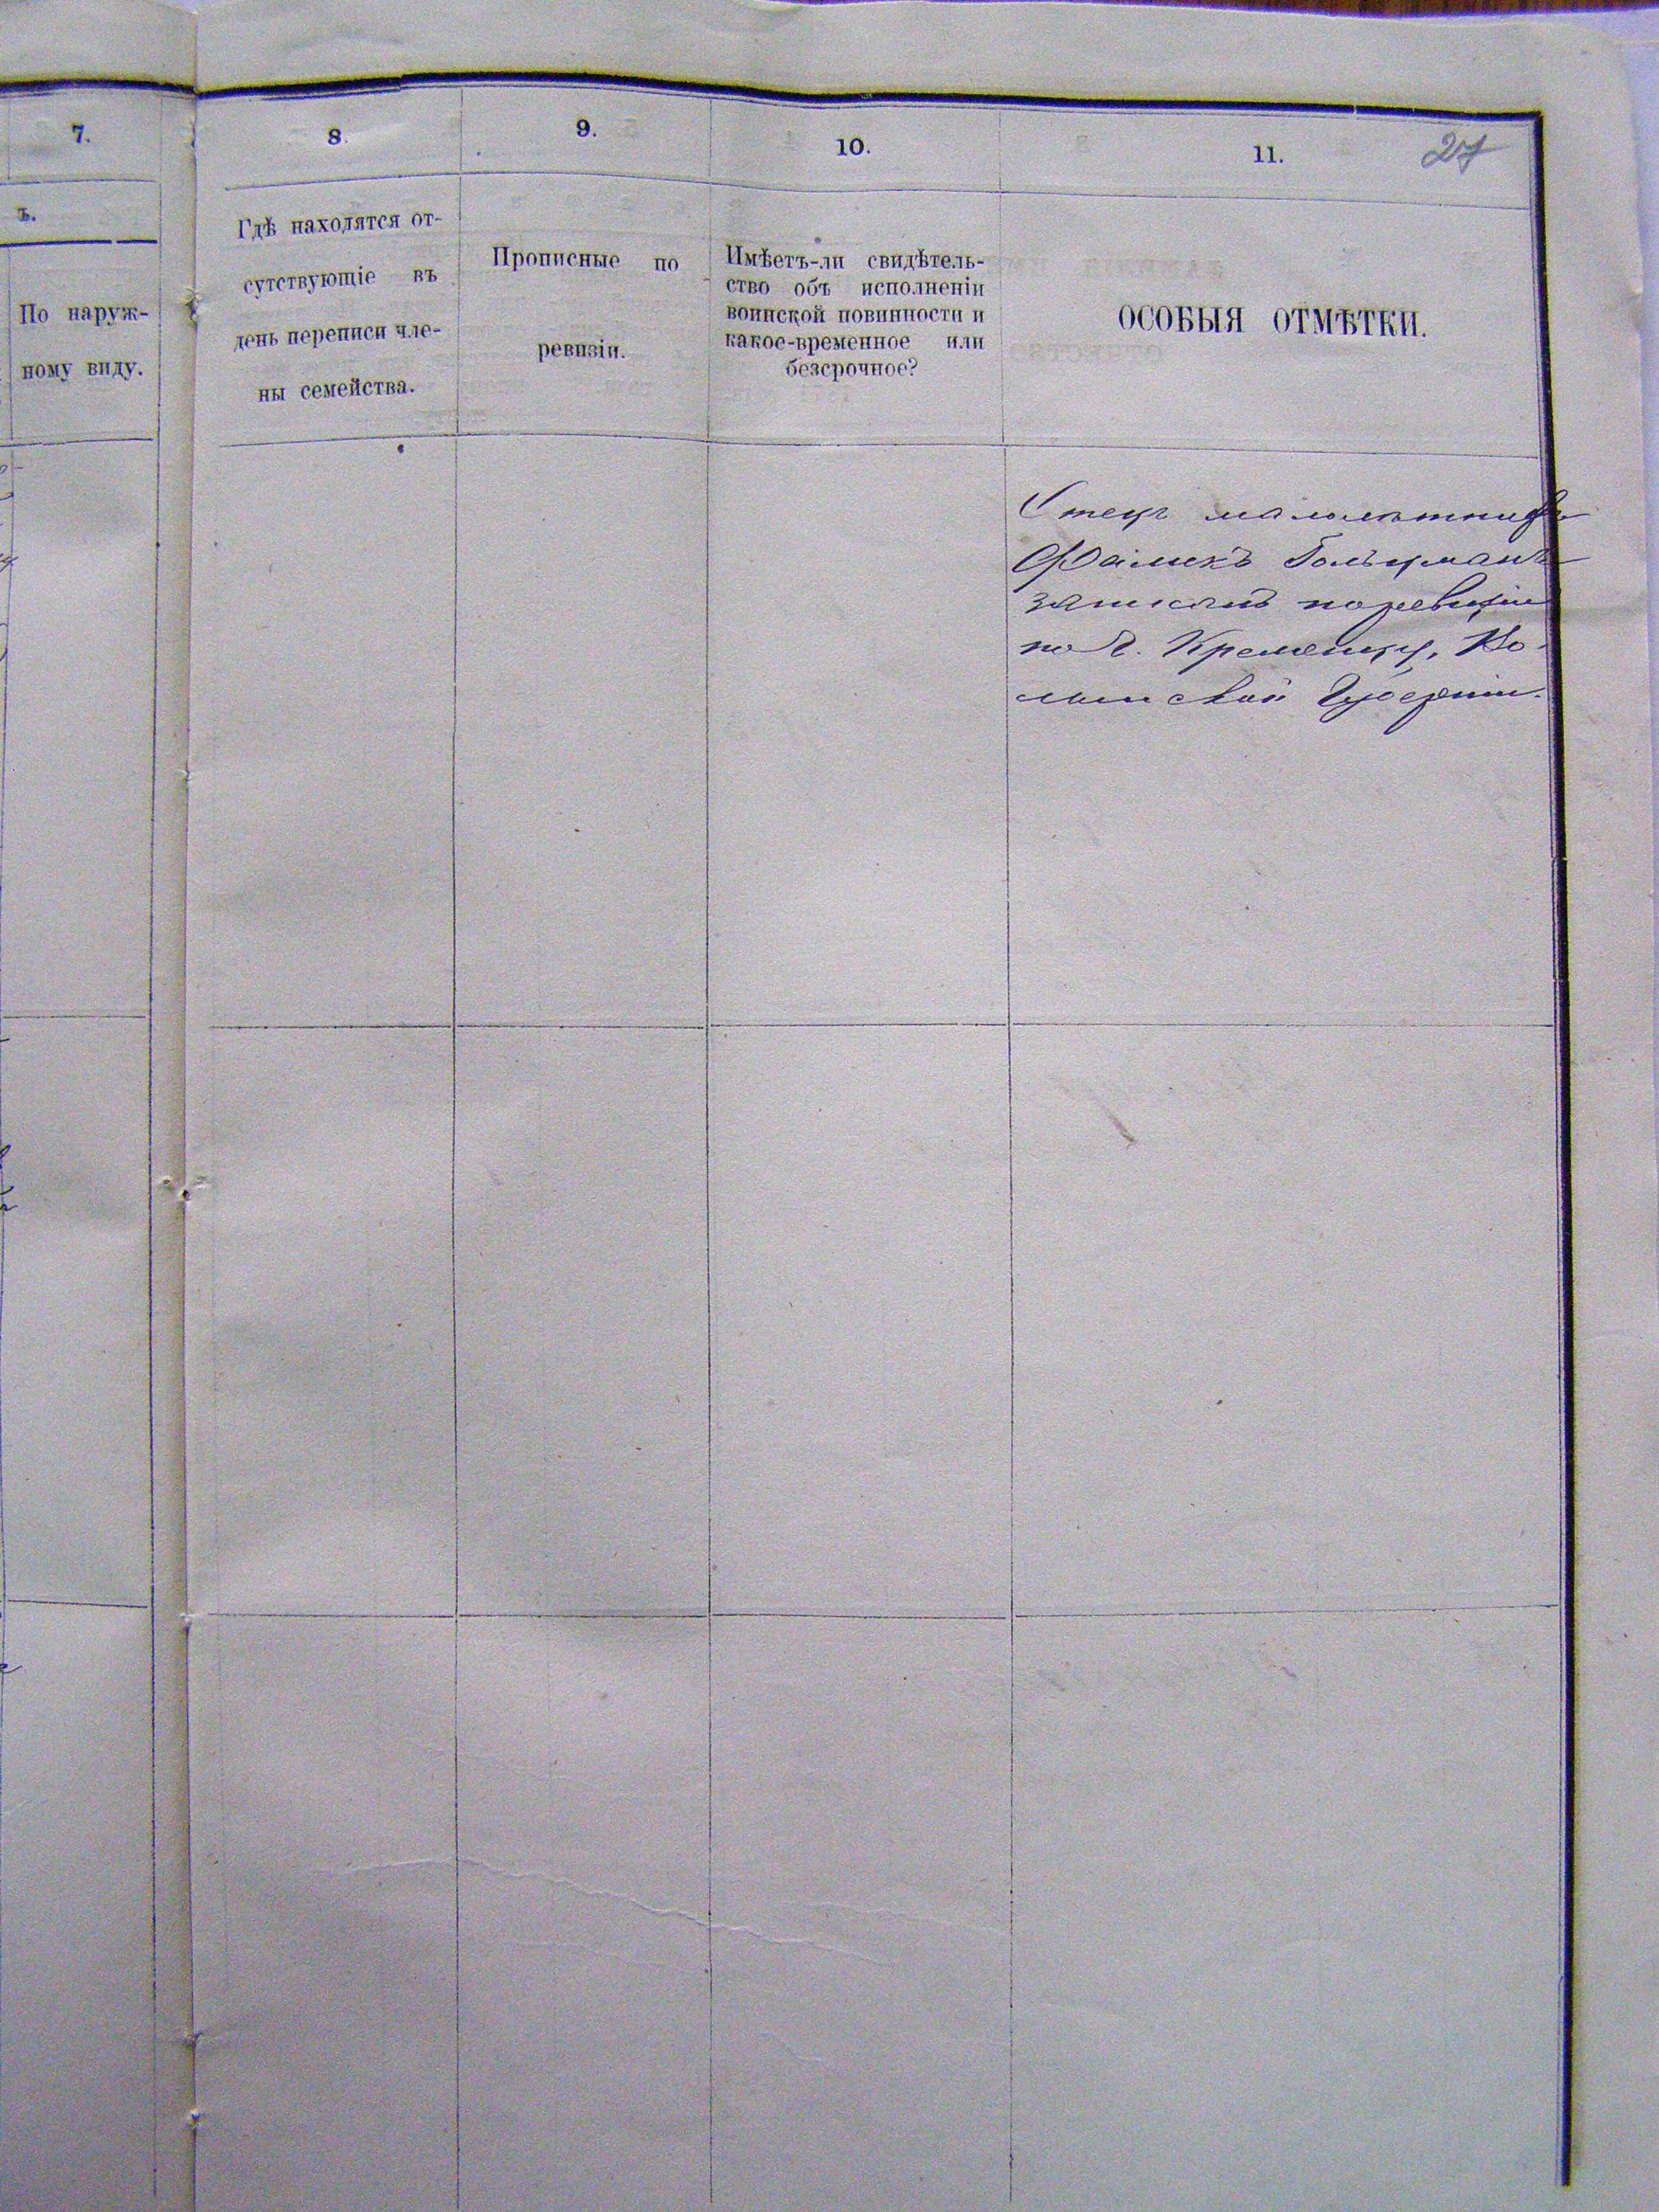 7.
8.
9.
10.
11.
27
ъ.
По наруж-
ному виду.
Гдѣ находятся от-
сутствующіе въ
день переписи чле-
ны семейства.
Прописные по
ревизіи.
Имѣетъ-ли свидѣтель-
ство объ исполненіи
воинской повинности и
какое-временное или
безсрочное?
ОСОБЫЯ ОТМѢТКИ.
Отецъ малолѣтнихъ
Фамекъ Гольцманъ
записанъ по ревизіи
по г. Кременцу, Во-
лынской Губерніи.